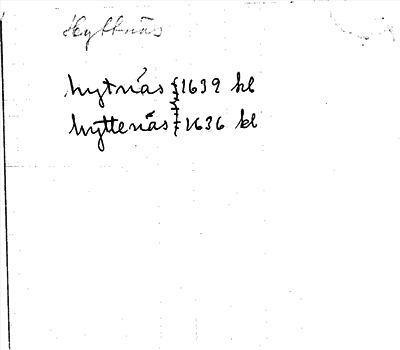 Hyttnäs
hytnäs 1639 kl
hyttenäs 1636 kl